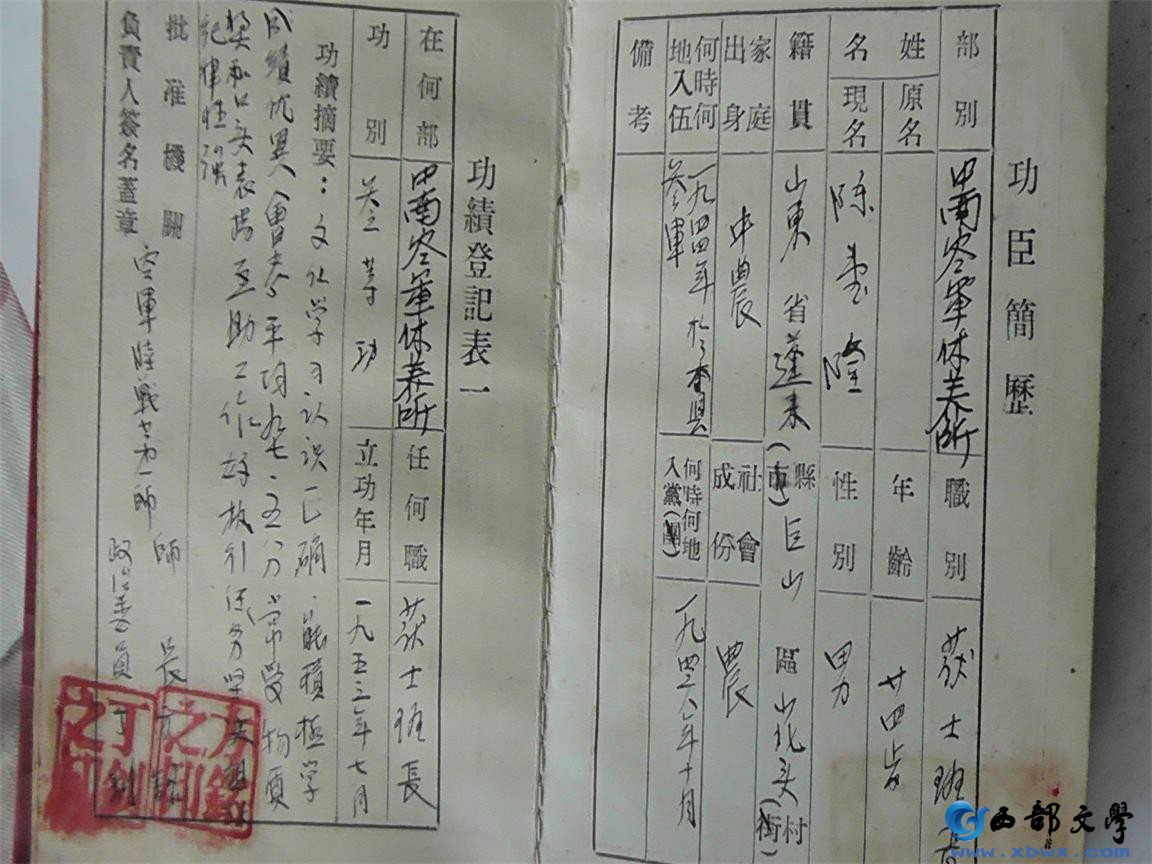 功臣簡歷
部別 中南空軍休养所 職別 葯士班長
姓名 原名 年齡 廿四岁
現名 陈 隆 性別 男
籍貫 山東省蓬莱縣(市)巨山區山北头村(街)
家庭出身 中農 社會成份 農
何時何地入伍 一九四四年於本县参軍 何時何地入黨(團) 一九四六年十月
備考
功績登記表一
在何部 中南空軍休养所 任何職 葯士班長
功別 叁等功 立功年月 一九五三年七月
功績摘要：文化学习认识正确能積極学
习成績优異(曾考平均九七·五分)常受物质
奖和口头表揚互助工作好
紀律性强
批准機關 空軍陸戰第一師 師長 方銘
負責人簽名蓋章 政治委員 丁釗
方銘之印
丁釗之印
西部文学
www.xbwx.com